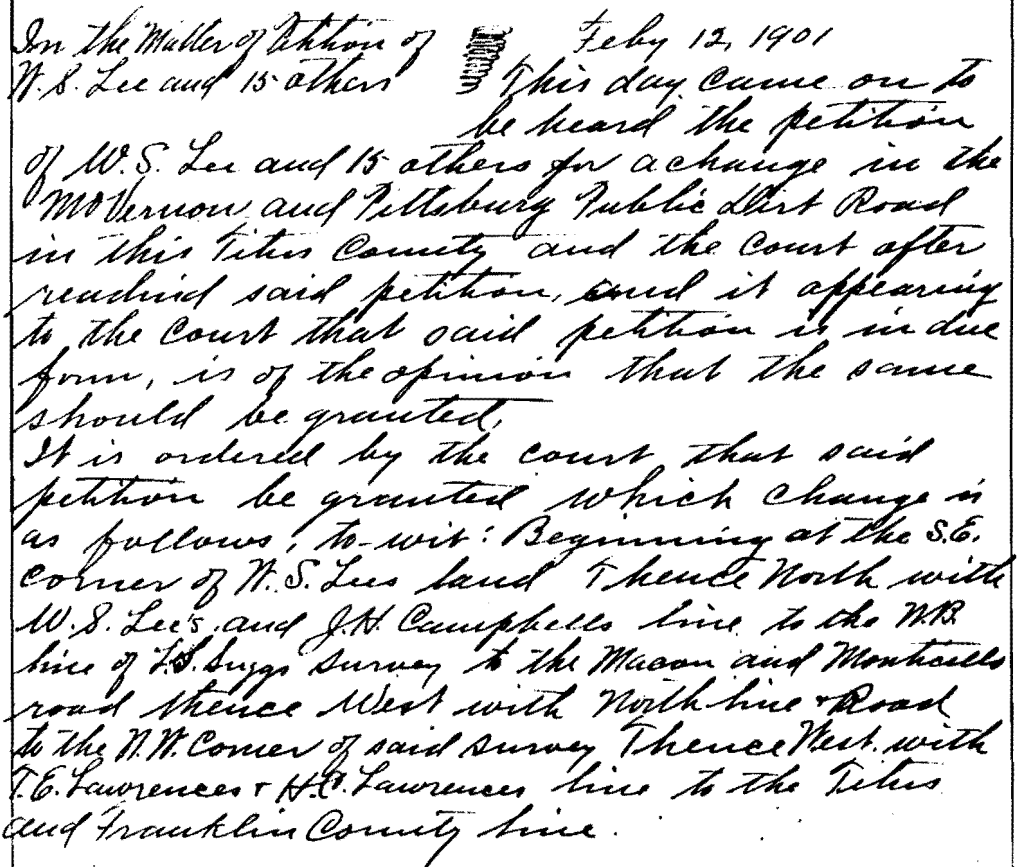 In the Matter of Petition of
W. S. Lee and 15 others
Feby 12, 1901
This day came on to
be heard the petition
of W. S. Lee and 15 others for a change in the
Mt Vernon and Pittsburg Public Dirt Road
in this Titus County and the court after
readind said petition, and it appearing
to the court that said petition is in due
form, is of the opinion that the same
should be granted.
It is ordered by the court that said
petition be granted which change is
as follows, to-wit: Beginning at the S.E.
corner of W. S. Lees land Thence North with
W. S. Lee's and J. H. Campbells line to the N.B.
line of Suggs survey to the Macon and Monticello
road thence West with North line + Road
to the N.W. Corner of said survey Thence West with
T. E. Lawrences + Lawrences line to the Titus
and Franklin County line.